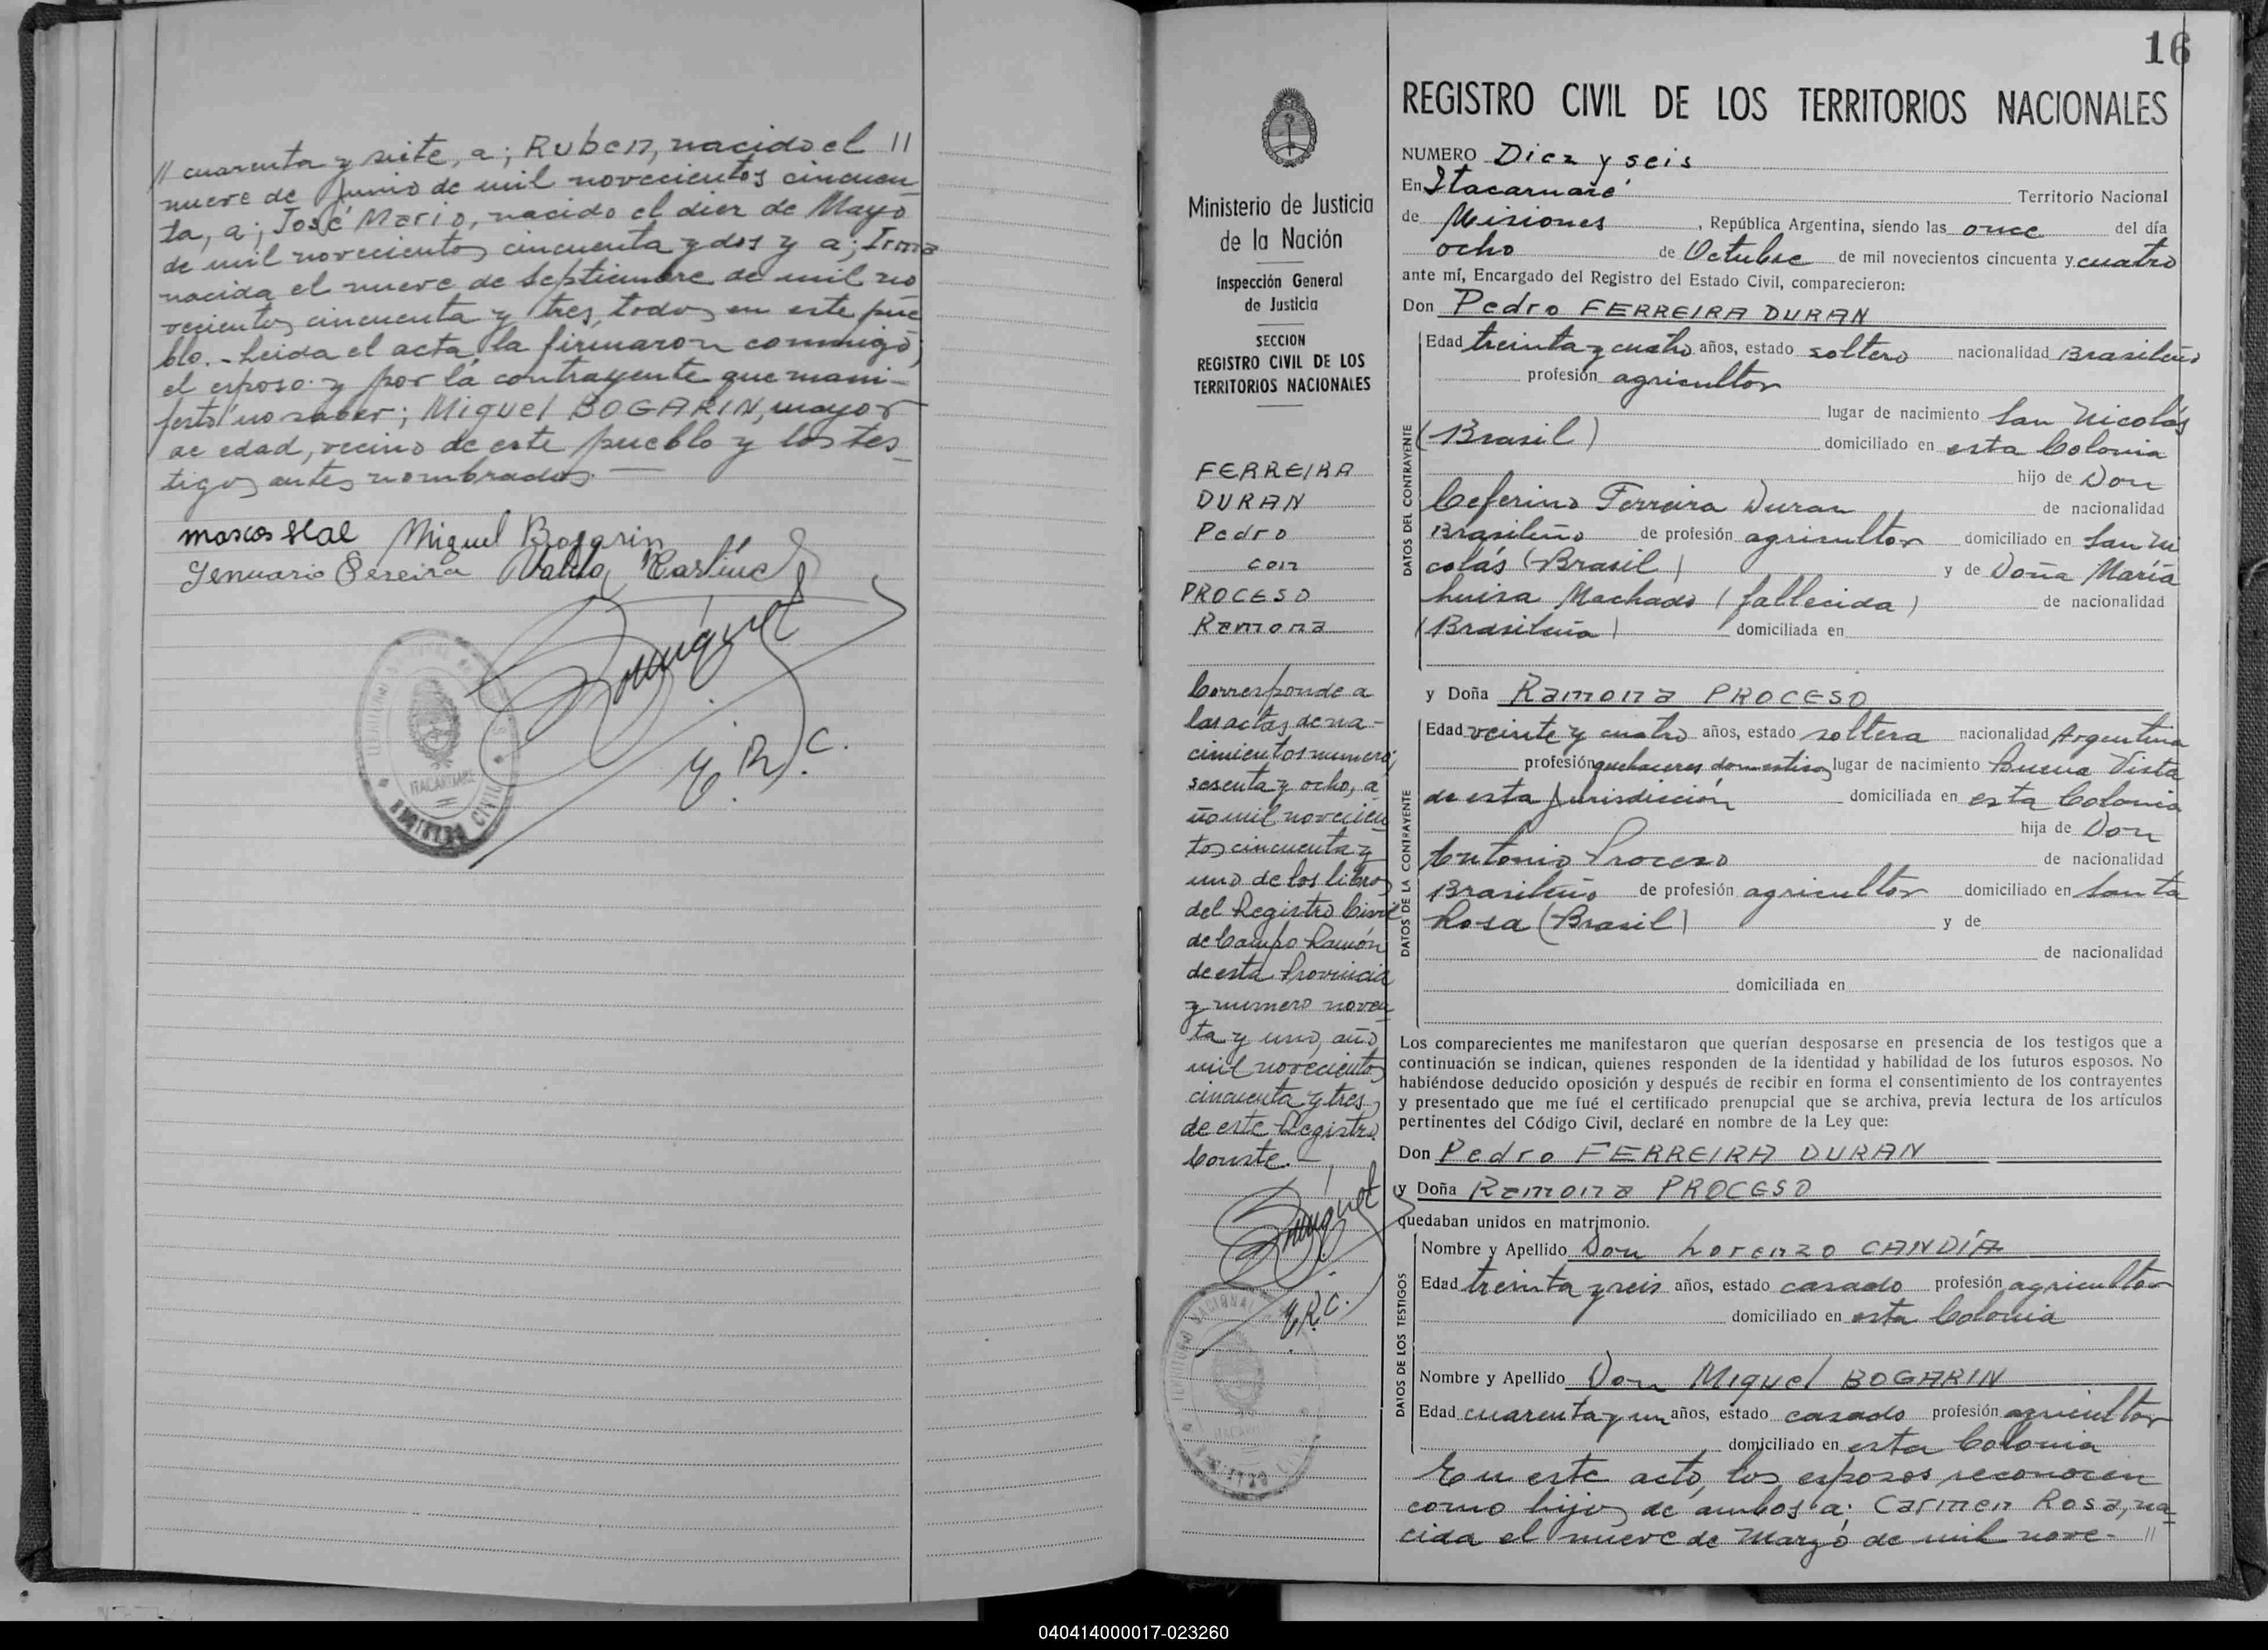 // cuarenta y siete, a; Ruben, nacido el //
nueve de Junio de mil novecientos cincuen_
ta, a; José Mario, nacido el diez de Mayo
de mil novecientos cincuenta y dos y a; Irma
nacida el nueve de Septiembre de mil no
vecientos cincuenta y tres, todos en este pue
blo.- Leida el acta, la firmaron conmigo,
el esposo y por la contrayente que mani-
festó no saber; Miguel BOGARIN, mayor
de edad, vecino de este pueblo y los tes_
tigos antes nombrados.
Miguel Bogarin
Jenuario Pereira
E.R.C.
ITACARUARE
REGISTRO CIVIL
16
Ministerio de Justicia
de la Nación
Inspección General
de Justicia
SECCION
REGISTRO CIVIL DE LOS
TERRITORIOS NACIONALES
FERREIRA
DURAN
Pedro
con
PROCESO
Ramona
Corresponde a
las actas de na-
cimientos numero;
sesenta y ocho, a
ño mil novecien
tos cincuenta y
uno de los libros
del Registro Civil
de Campo Ramón
de esta Provincia
y numero noven
ta y uno, año
mil novecientos
cincuenta y tres,
de este Registro.
Conste.-
E.R.C.
REGISTRO CIVIL DE LOS TERRITORIOS NACIONALES
NUMERO Diez y seis
En Itacaruaré Territorio Nacional
de Misiones, República Argentina, siendo las once del día
ocho de Octubre de mil novecientos cincuenta y cuatro
ante mí, Encargado del Registro del Estado Civil, comparecieron:
Don Pedro FERREIRA DURAN
DATOS DEL CONTRAYENTE
Edad treinta y cuatro años, estado soltero nacionalidad Brasileño
profesión agricultor
lugar de nacimiento San Nicolás
(Brasil) domiciliado en esta Colonia
hijo de Don
Ceferino Ferreira Duran de nacionalidad
Brasileño de profesión agricultor domiciliado en San Ni
colás (Brasil) y de Doña María
Luisa Machado (fallecida) de nacionalidad
(Brasileña) domiciliada en
y Doña Ramona PROCESO
DATOS DE LA CONTRAYENTE
Edad veinte y cuatro años, estado soltera nacionalidad Argentina
profesión quehaceres domesticos lugar de nacimiento Buena Vista
de esta Jurisdicción domiciliada en esta Colonia
hija de Don
Antonio Proceso de nacionalidad
Brasileño de profesión agricultor domiciliado en Santa
Rosa (Brasil) y de
de nacionalidad
domiciliada en
Los comparecientes me manifestaron que querían desposarse en presencia de los testigos que a
continuación se indican, quienes responden de la identidad y habilidad de los futuros esposos. No
habiéndose deducido oposición y después de recibir en forma el consentimiento de los contrayentes
y presentado que me fué el certificado prenupcial que se archiva, previa lectura de los artículos
pertinentes del Código Civil, declaré en nombre de la Ley que:
Don Pedro FERREIRA DURAN
y Doña Ramona PROCESO
quedaban unidos en matrimonio.
DATOS DE LOS TESTIGOS
Nombre y Apellido Don Lorenzo CANDÍA
Edad treinta y seis años, estado casado profesión agricultor
domiciliado en esta Colonia
Nombre y Apellido Don Miguel BOGARIN
Edad cuarenta y un años, estado casado profesión agricultor
domiciliado en esta Colonia
En este acto, los esposos reconocen
como hijos de ambos a: Carmen Rosa, na_
cida el nueve de Marzo de mil nove- //
040414000017-023260